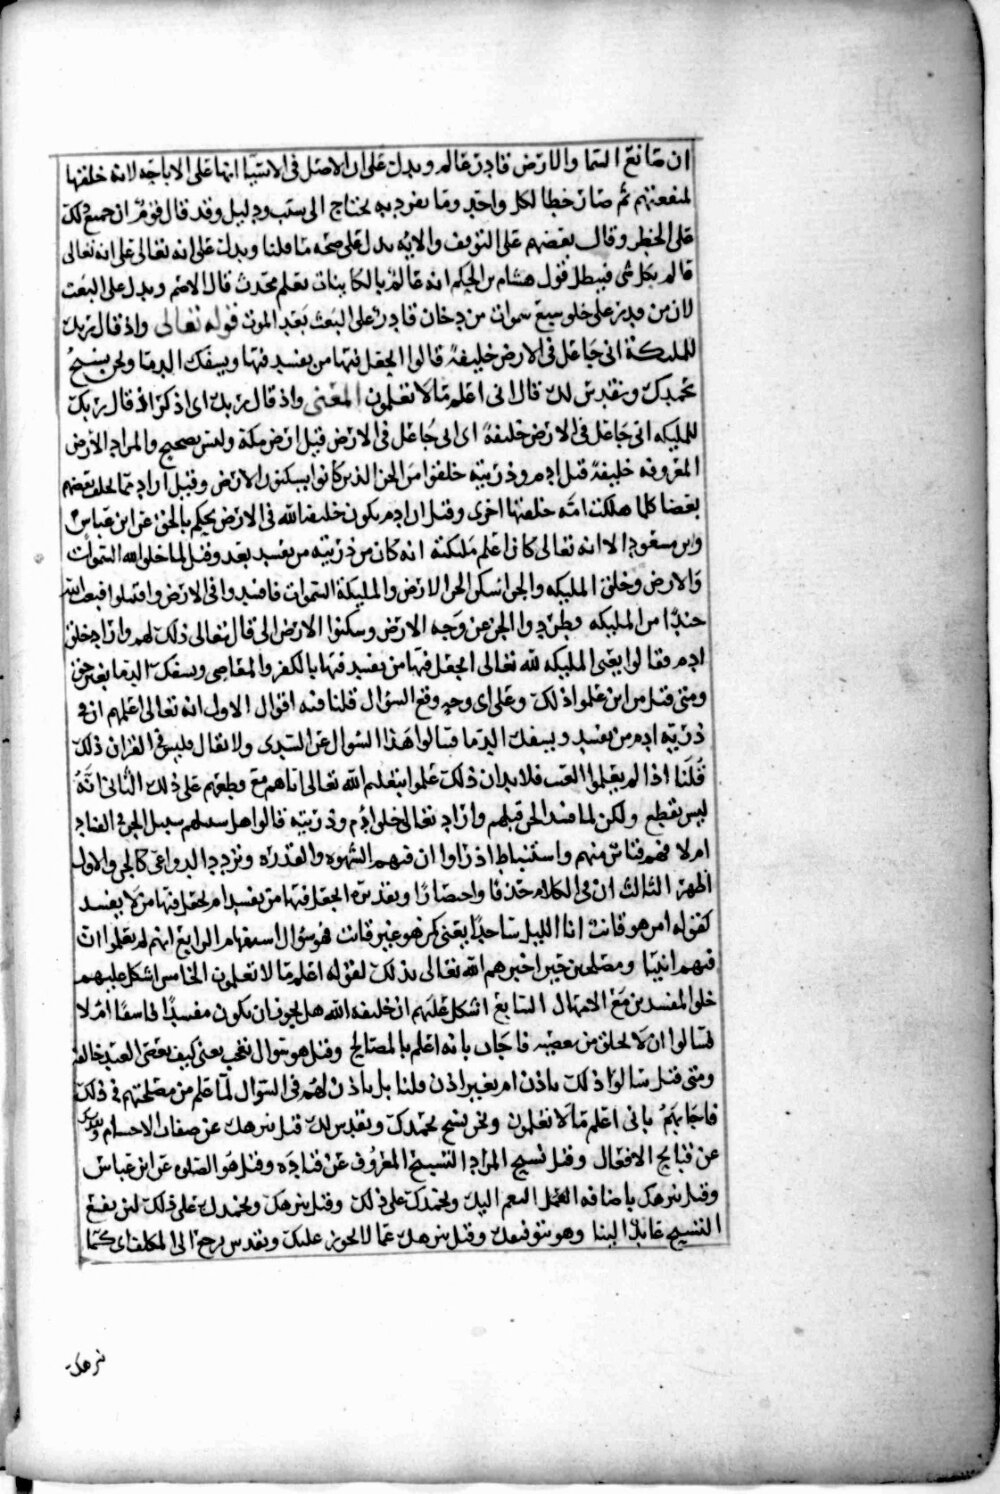 ان صانع السما والارض قادر عالم ويدل على ان الاصل في الاشيا انها على الاباحه لانه خلقها
لمنفعتهم ثم صار خطا لكل واحد وما نفرد به يحتاج الى سبب ودليل وقد قال قوم ان جميع ذلك
على الحظر وقال بعضهم على التوقف والايه يدل على صحه ما قلنا ويدل على انه تعالى على انه تعالى
عالم بكل شي فيبطل قول هشام بن الحكم انه عالم بالكاينات بعلم محدث قال الاصم ويدل على البعث
لان من قدر على خلق سبع سموات من دخان قادر على البعث بعد الموت قوله تعالى واذ قال ربك
للمليكة اني جاعل في الارض خليفة قالوا اتجعل فيها من يفسد فيها ويسفك الدما ونحن نسبح
بحمدك ونقدس لك قال اني اعلم ما لا تعلمون المعنى واذ قال ربك اي اذكر اذ قال ربك
للمليكه اني جاعل في الارض خليفة اي اني جاعل في الارض قيل ارض مكة وليس بصحيح والمراد الارض
المعروفه خليفة قيل ادم وذريته خلفوا من الجن الذين كانوا يسكنون الارض وقيل اراد مما يخلف بعضهم
بعضا كلما هلكت امه خلفتها اخرى وقيل ان ادم يكون خليفة الله في الارض يحكم بالحق عن ابن عباس
وابن مسعود الا انه تعالى كان اعلم مليكته انه كان من ذريته من يفسد بعد وقيل لما خلق الله السموات
والارض وخلق المليكه والجن اسكن الجن الارض والمليكة السموات فافسدوا في الارض واقتتلوا فبعث الله
جندا من المليكه فطردوا الجن عن وجه الارض وسكنوا الارض الى قال تعالى ذلك لهم واراد خلق
ادم فقالوا يعني المليكه لله تعالى اتجعل فيها من يفسد فيها بالكفر والمعاصي ويسفك الدما بغير حق
ومتى قيل من اين علموا ذلك وعلى اي وجه وقع السوال قلنا فيه اقوال الاول انه تعالى اعلمهم ان في
ذرية ادم من يفسد ويسفك الدما فسالوا هذا السوال عن السدي ولا يقال فليس في القران ذلك
قلنا اذا لم يعلموا الغيب فلا بد ان ذلك علموا بتعليم الله تعالى اياهم مع قطعهم على ذلك الثاني انه
ليس بقطع ولكن لما افسد الجن قبلهم واراد تعالى خلق ادم وذريته قالوا هل سبيلهم سبيل الجن في الفساد
ام لا فهم قياس منهم واستنباط اذ راوا ان فيهم الشهوه والقدره وتردد الدواعي كالجن والاول
اظهر الثالث ان في الكلام حذفا واختصارا وتقديره اتجعل فيها من يفسد ام تجعل فيها من لا يفسد
كقوله امن هو قانت انا الليل ساجدا يعني كمن هو غير قانت فهو سوال استفهام الرابع انهم لم يعلموا ان
فيهم انبيا ومصلحين خير اخبرهم الله تعالى بذلك لقوله اعلم ما لا تعلمون الخامس اشكل عليهم
خلق المفسدين مع الامهال السابع اشكل عليهم ان خليفه الله هل يجوز ان يكون مفسدا فاسقا ام لا
فسالوا ان لا يخلق من يعصيه فاجاب بانه اعلم بالمصالح وقيل هو سوال تعجب يعني كيف يعصى العبد خالقه
ومتى قيل سالوا ذلك باذن ام بغير اذن قلنا بل باذن لهم في السوال لما علم من مصلحتهم في ذلك
فاجابهم باني اعلم ما لا تعلمون ونحن نسبح بحمدك ونقدس لك قيل ننزهك عن صفات الاجسام
عن قبايح الافعال وقيل نسبح المراد التسبيح المعروف عن قتاده وقيل هو الصلوه عن ابن عباس
وقيل ننزهك باضافه النعم اليك ونحمدك على ذلك وقيل ننزهك ونحمدك على ذلك لئن نفع
التسبيح عايد الينا وهو بتوفيقك وقيل ننزهك عما لا يجوز عليك ونقدس يرجع الى المكلف اي كما
ننزهك